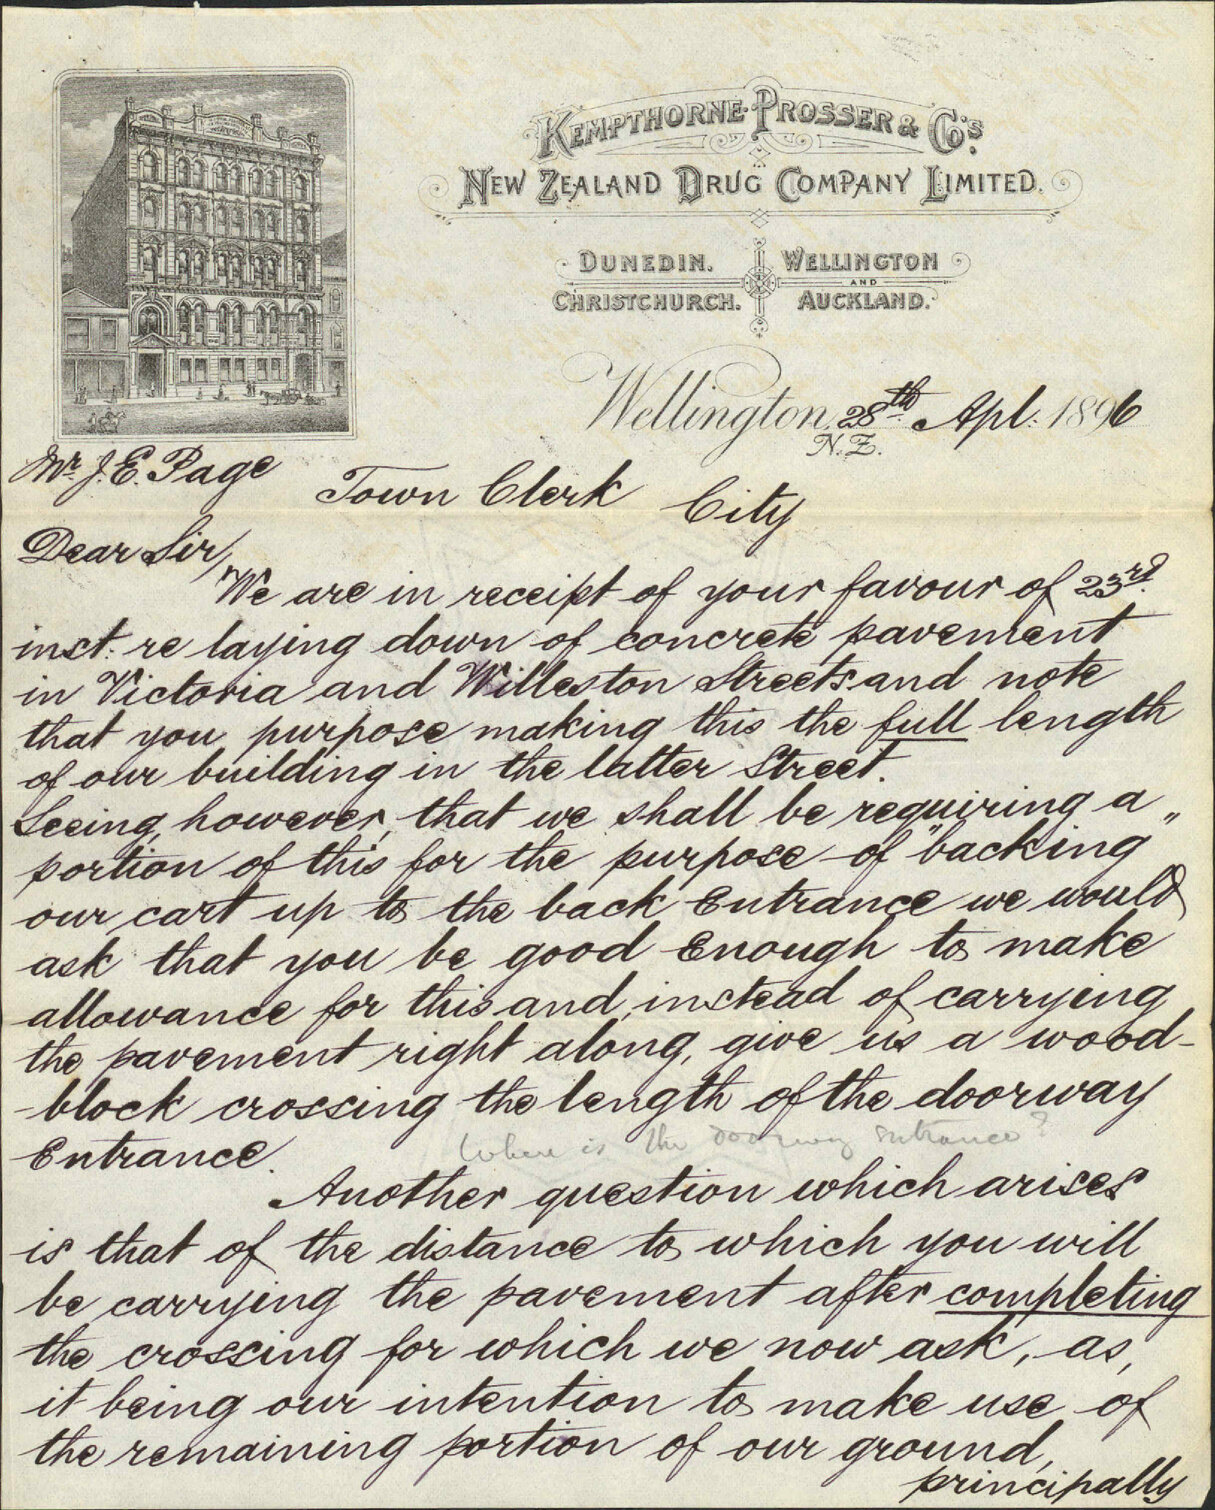 KEMPTHORNE PROSSER & CO'S.
NEW ZEALAND DRUG COMPANY LIMITED.
DUNEDIN. WELLINGTON
AND
CHRISTCHURCH. AUCKLAND.
Wellington, 28th Apl: 1896
N.Z.
Mr. J. E. Page
Town Clerk City
Dear Sir,
We are in receipt of your favour of 23rd.
inst: re laying down of concrete pavement
in Victoria and Willeston Streets and note
that you purpose making this the full length
of our building in the latter Street.
Seeing, however, that we shall be requiring a
portion of this for the purpose of "backing"
our cart up to the back Entrance we would
ask that you be good Enough to make
allowance for this and, instead of carrying
the pavement right along, give us a wood-
block crossing the length of the doorway
Entrance.
Where is the doorway entrance?
Another question which arises
is that of the distance to which you will
be carrying the pavement after completing
the crossing for which we now ask, as,
it being our intention to make use of
the remaining portion of our ground,
principally